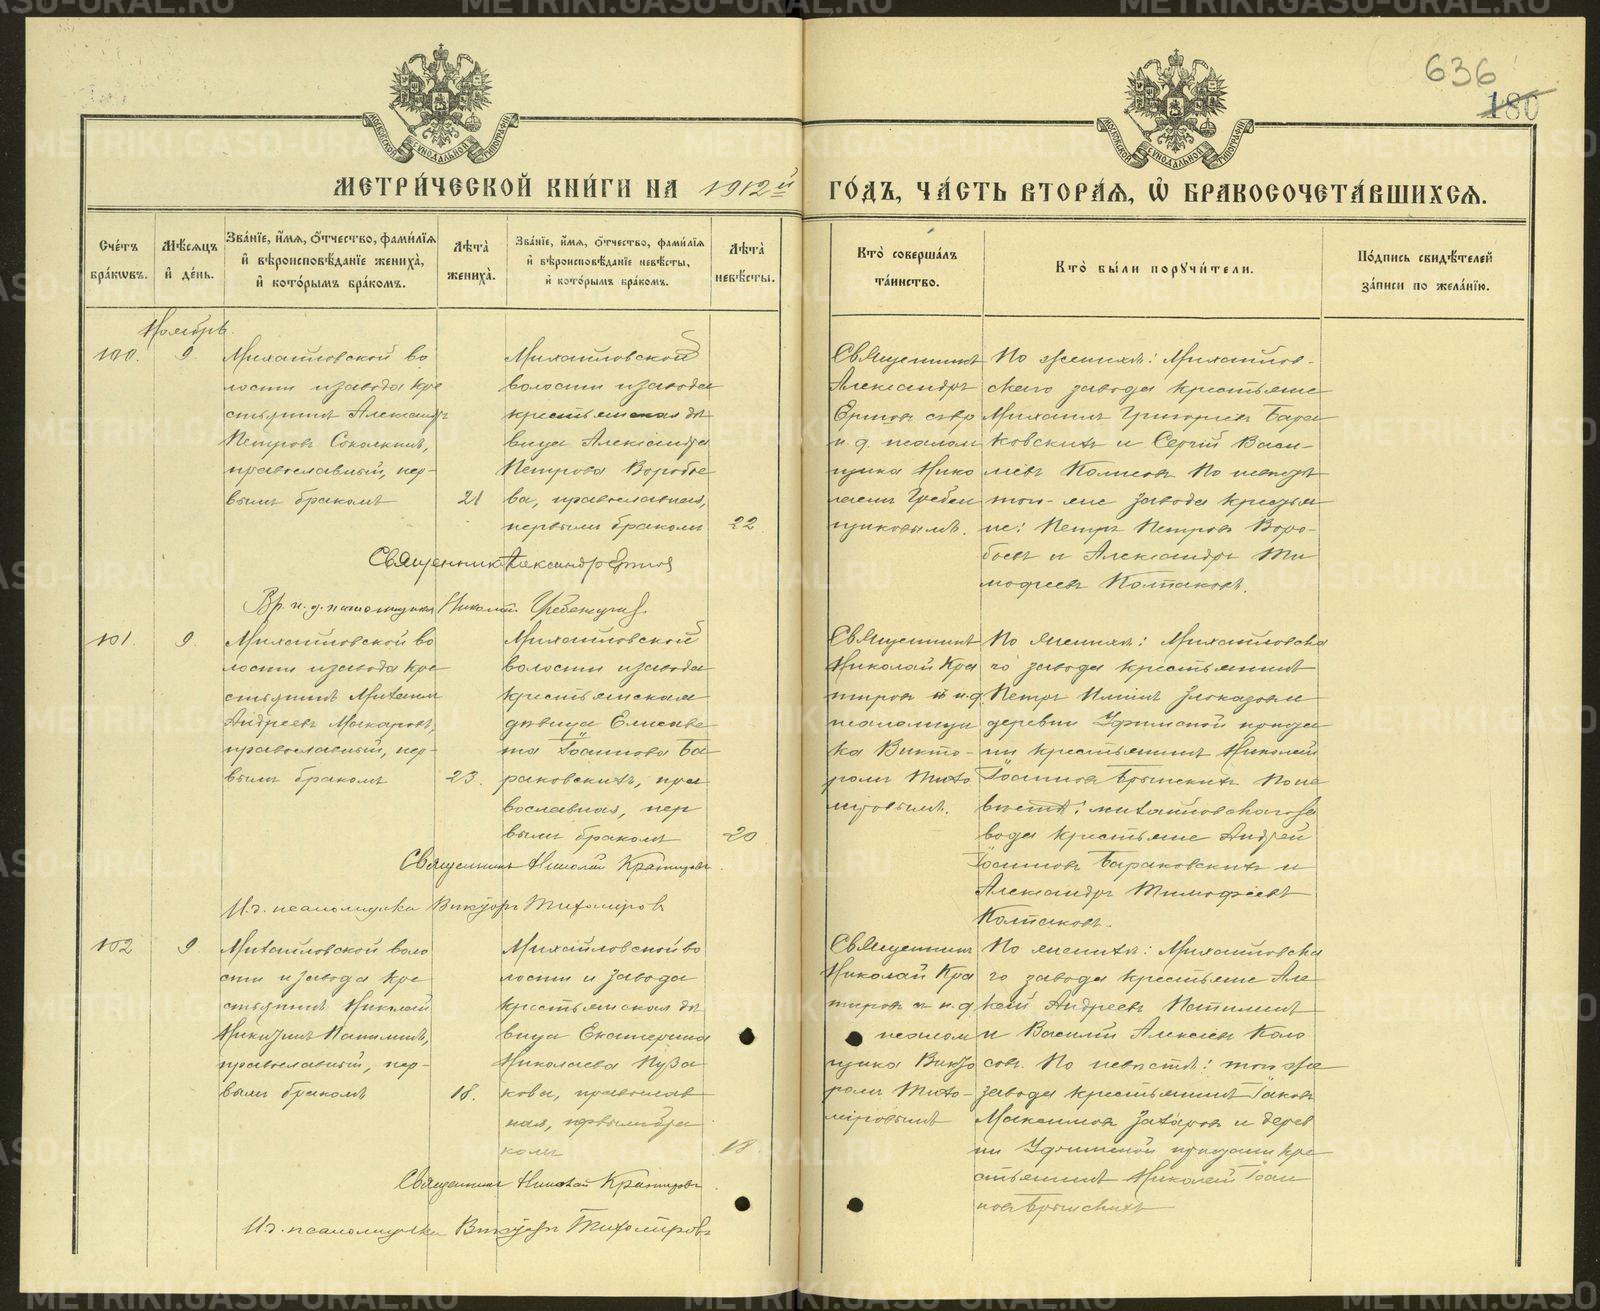 636
180
МЕТРИ́ЧЕСКОЙ КНИ́ГИ НА 1912й ГО́ДЪ, ЧА́СТЬ ВТОРА́Я, Ѽ БРАКОСОЧЕТА́ВШИХСЯ.
Сче́тъ бра́кѡвъ.
Мѣ́сяцъ и҆ де́нь.
Зва́нїе, и҆́мя, ѻ҆́тчество, фами́лїя и҆ вѣроисповѣ́данїе жениха̀, и҆ кото́рымъ бра́комъ.
Лѣта̀ жениха̀.
Зва́нїе, и҆́мя, ѻ҆́тчество, фами́лїя и҆ вѣроисповѣ́данїе невѣ́сты, и҆ кото́рымъ бра́комъ.
Лѣта̀ невѣ́сты.
Кто̀ соверша́лъ та́инство.
Кто̀ бы́ли поручи́тели.
По́дпись свидѣ́телей за́писи по жела́нїю.
Ноябрь.
100.
9.
Михайловской во
лости и завода кре
стьянинъ Александръ
Петровъ Соколкинъ,
православный, пер-
вымъ бракомъ
21
Михайловской
волости и завода
крестьянская дѣ
вица Александра
Петрова Воробье
ва, православная,
первымъ бракомъ
22.
Священникъ
Александръ
Ершовъ
и. д. псалом
щика Нико
лаемъ Гребен
щиковымъ.
По женихѣ: Михайлов-
скаго завода крестьяне
Михаилъ Григорьевъ Бара
ковскихъ и Сергѣй Васи-
льевъ По невѣстѣ
того-же завода крестья
не: Петръ Петровъ Воро-
бьевъ и Александръ Ти
мофеевъ Колпаковъ.
Священникъ Александръ Ершовъ
Вр. и. д. псаломщика Николай Гребенщик.
101.
9.
Михайловской во
лости и завода кре
стьянинъ Михаилъ
Андреевъ Макаровъ,
православный, пер-
вымъ бракомъ
23.
Михайловской
волости и завода
крестьянская
дѣвица Елисаве
та Іоаннова Ба-
раковскихъ, пра
вославная, пер
вымъ бракомъ
20
Священникъ
Николай
и. д.
псаломщи
ка Викто-
ромъ Тихо
міровымъ.
По женихѣ: Михайловска
го завода крестьянинъ
Петръ Злоказовъ и
деревни Уфимской
крестьянинъ Николай
Іоанновъ По не
вѣстѣ: Михайловскаго за
вода крестьяне Андрей
Іоанновъ Бараковскихъ и
Александръ Тимофеевъ
Колпаковъ.
Священникъ Николай
И. д. псаломщика Викторъ Тихомировъ
102
9.
Михайловской воло
сти и завода кре-
стьянинъ Николай
Никитинъ Патинъ,
православный, пер-
вымъ бракомъ
18.
Михайловской во
лости и завода
крестьянская дѣ
вица Екатерина
Николаева Пуза
кова, православ
ная, первымъ бра
комъ
18
Священникъ
Николай
и. д.
псалом
щика Викто
ромъ Тихо-
міровымъ
По женихѣ: Михайловска
го завода крестьяне Але
ксѣй Андреевъ
и Василій Алексеевъ Коло
совъ. По невѣстѣ: того же
завода крестьянинъ Іаковъ
Максимовъ Захаровъ и дерев
ни Уфимской кре-
стьянинъ Николай Іоан
новъ
Священникъ Николай
И. д. псаломщика Викторъ Тихомировъ